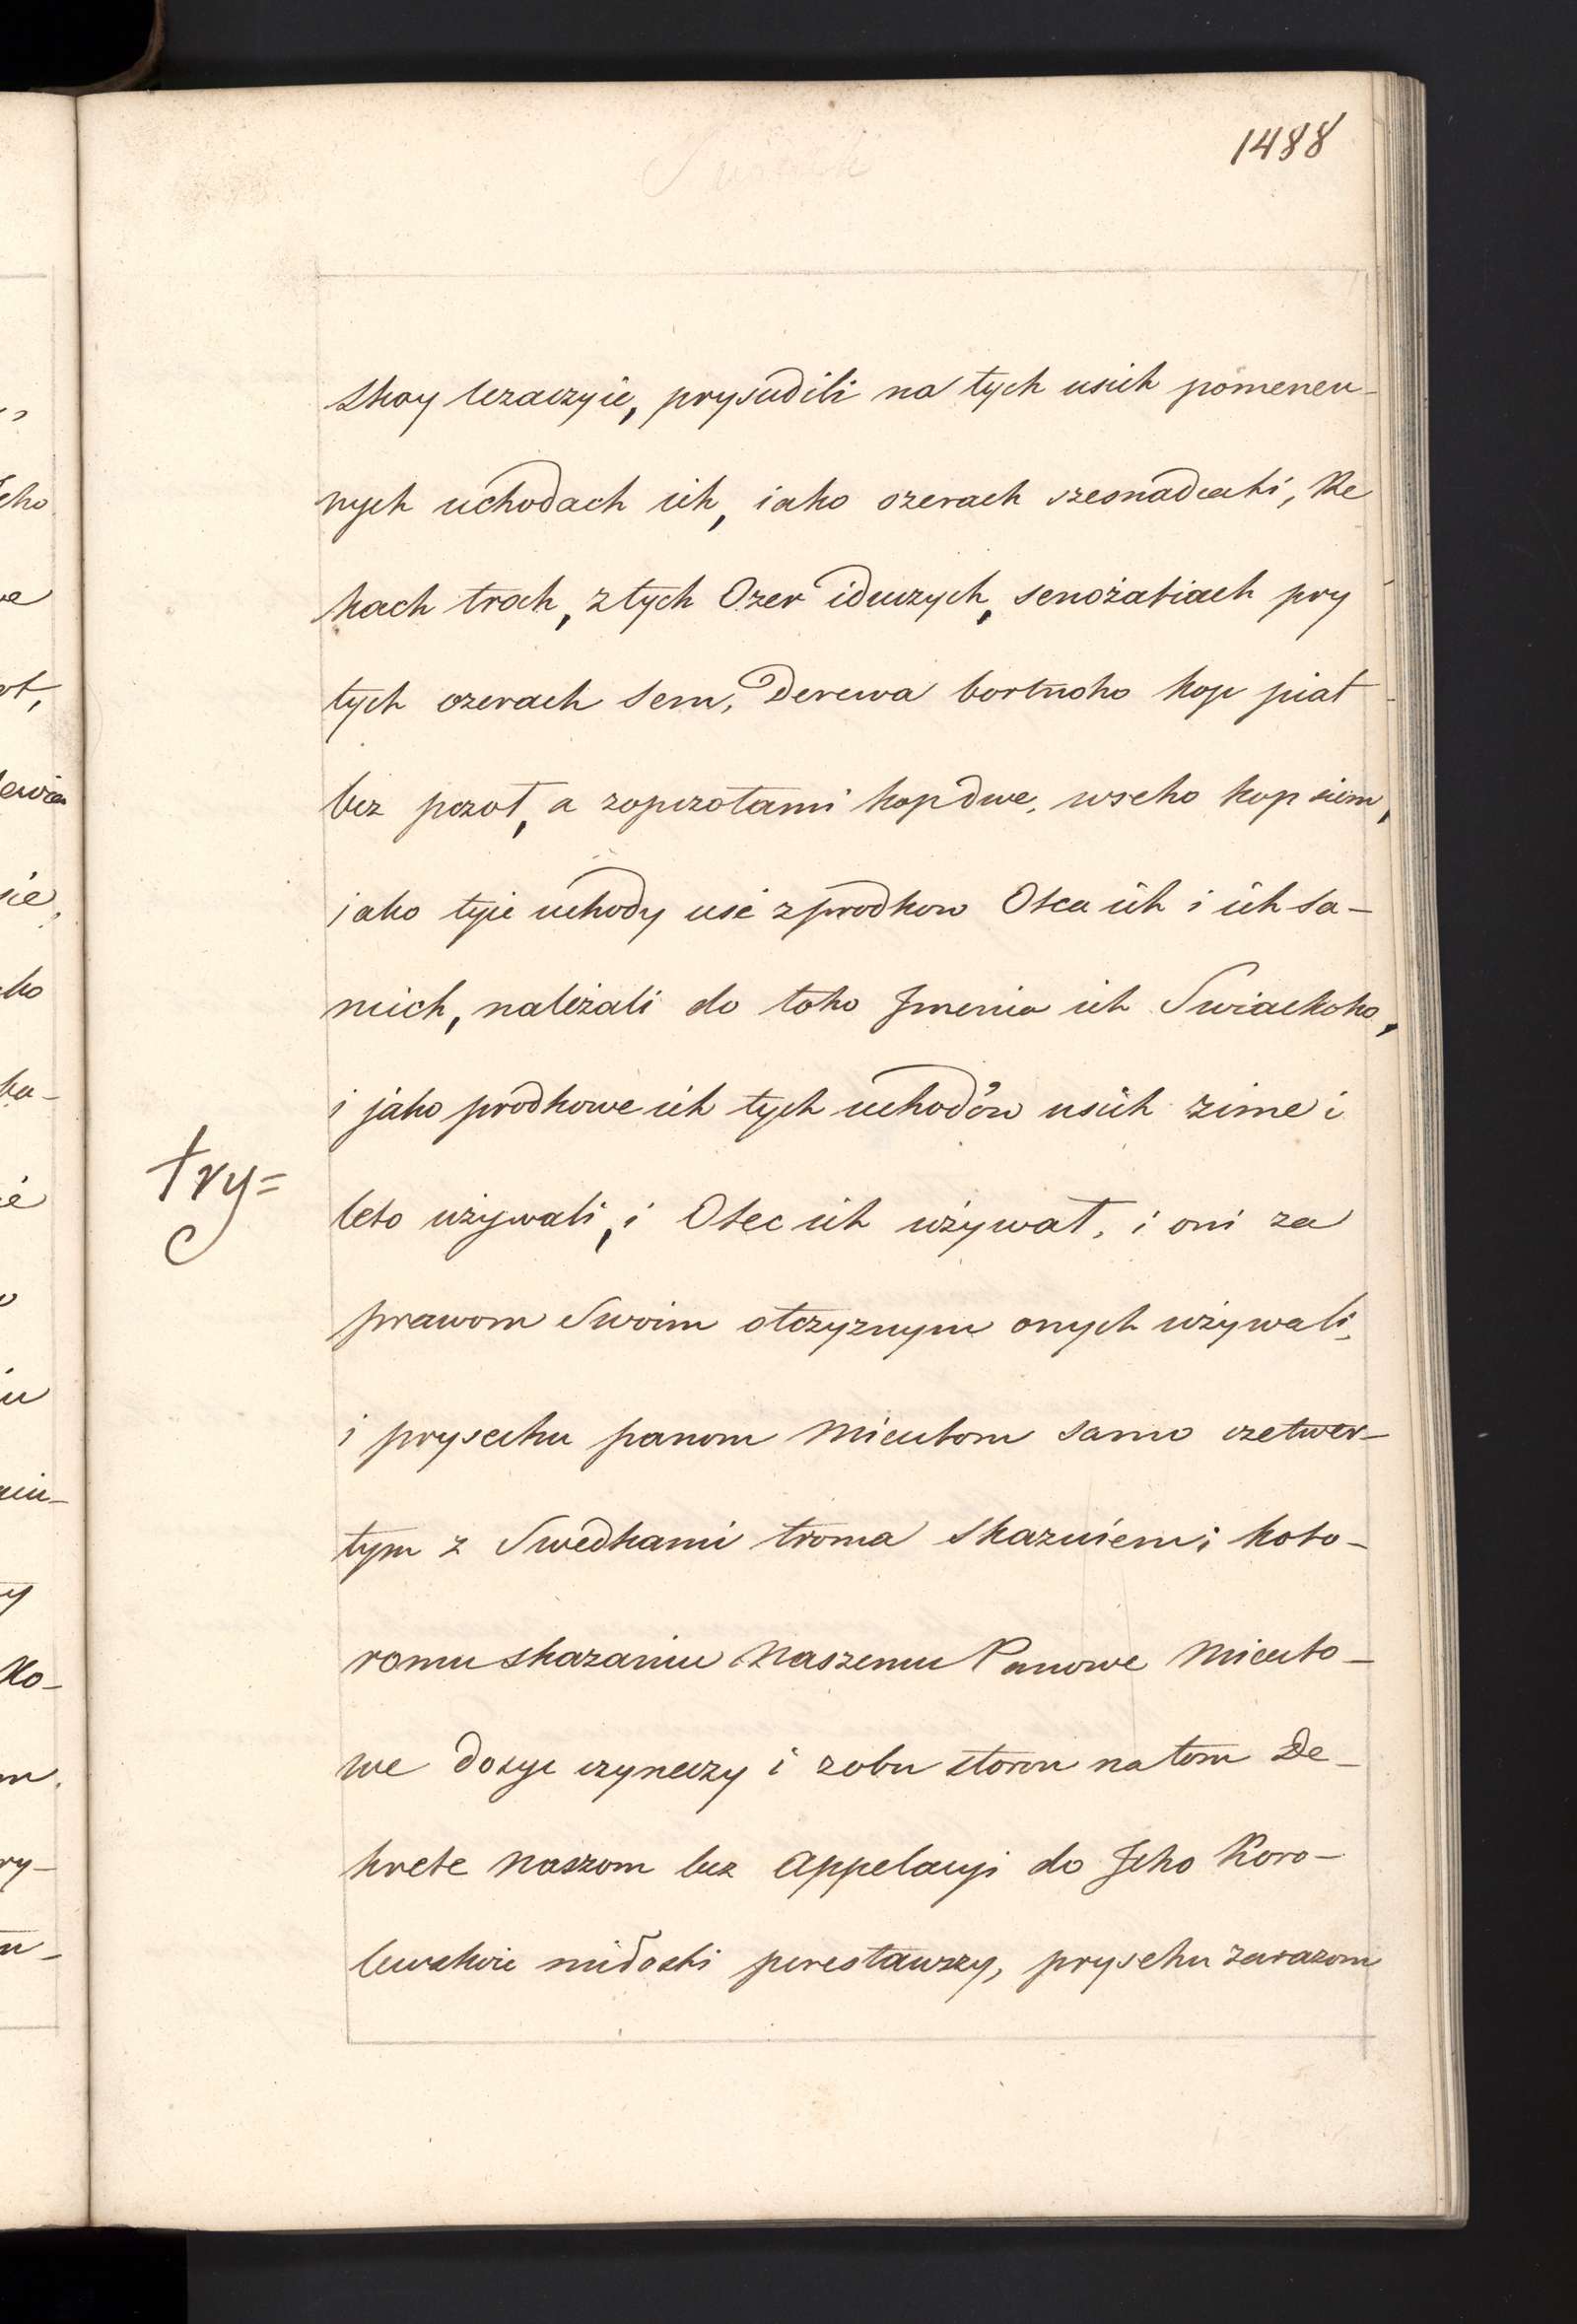 1488
skoy lezaczyie, prysudili na tych usich pomenen-
nych uchodach ich, iako ozerach szesnadcati, Re
kach troch, z tych Ozer iduczych, senożatiach pry
tych ozerach sem, Derewa bortnoho kop piat
bez pczoł, a zopczołami kop dwe, wseho kop siem,
jako tyie uchody usie z prodkow Otca ich i ich sa-
mich, należali do toho Jmenia ich Swiackoho,
i jako prodkowe ich tych uchodów usich zime i
leto używali, i Otec ich używał, i oni za
prawom Swoim otczyznym onych używali,
i prysehu panom Micutom samo czetwer-
tym z Swedkami troma skazuiem; koto-
romu skazaniu Naszemu Panowe Micuto-
we dosyc czyneczy i zobu storon na tom De-
krete Naszom bez Appelacyi do Jeho Koro-
lewskoie miłosti perestawszy, prysehu zarazom
try=